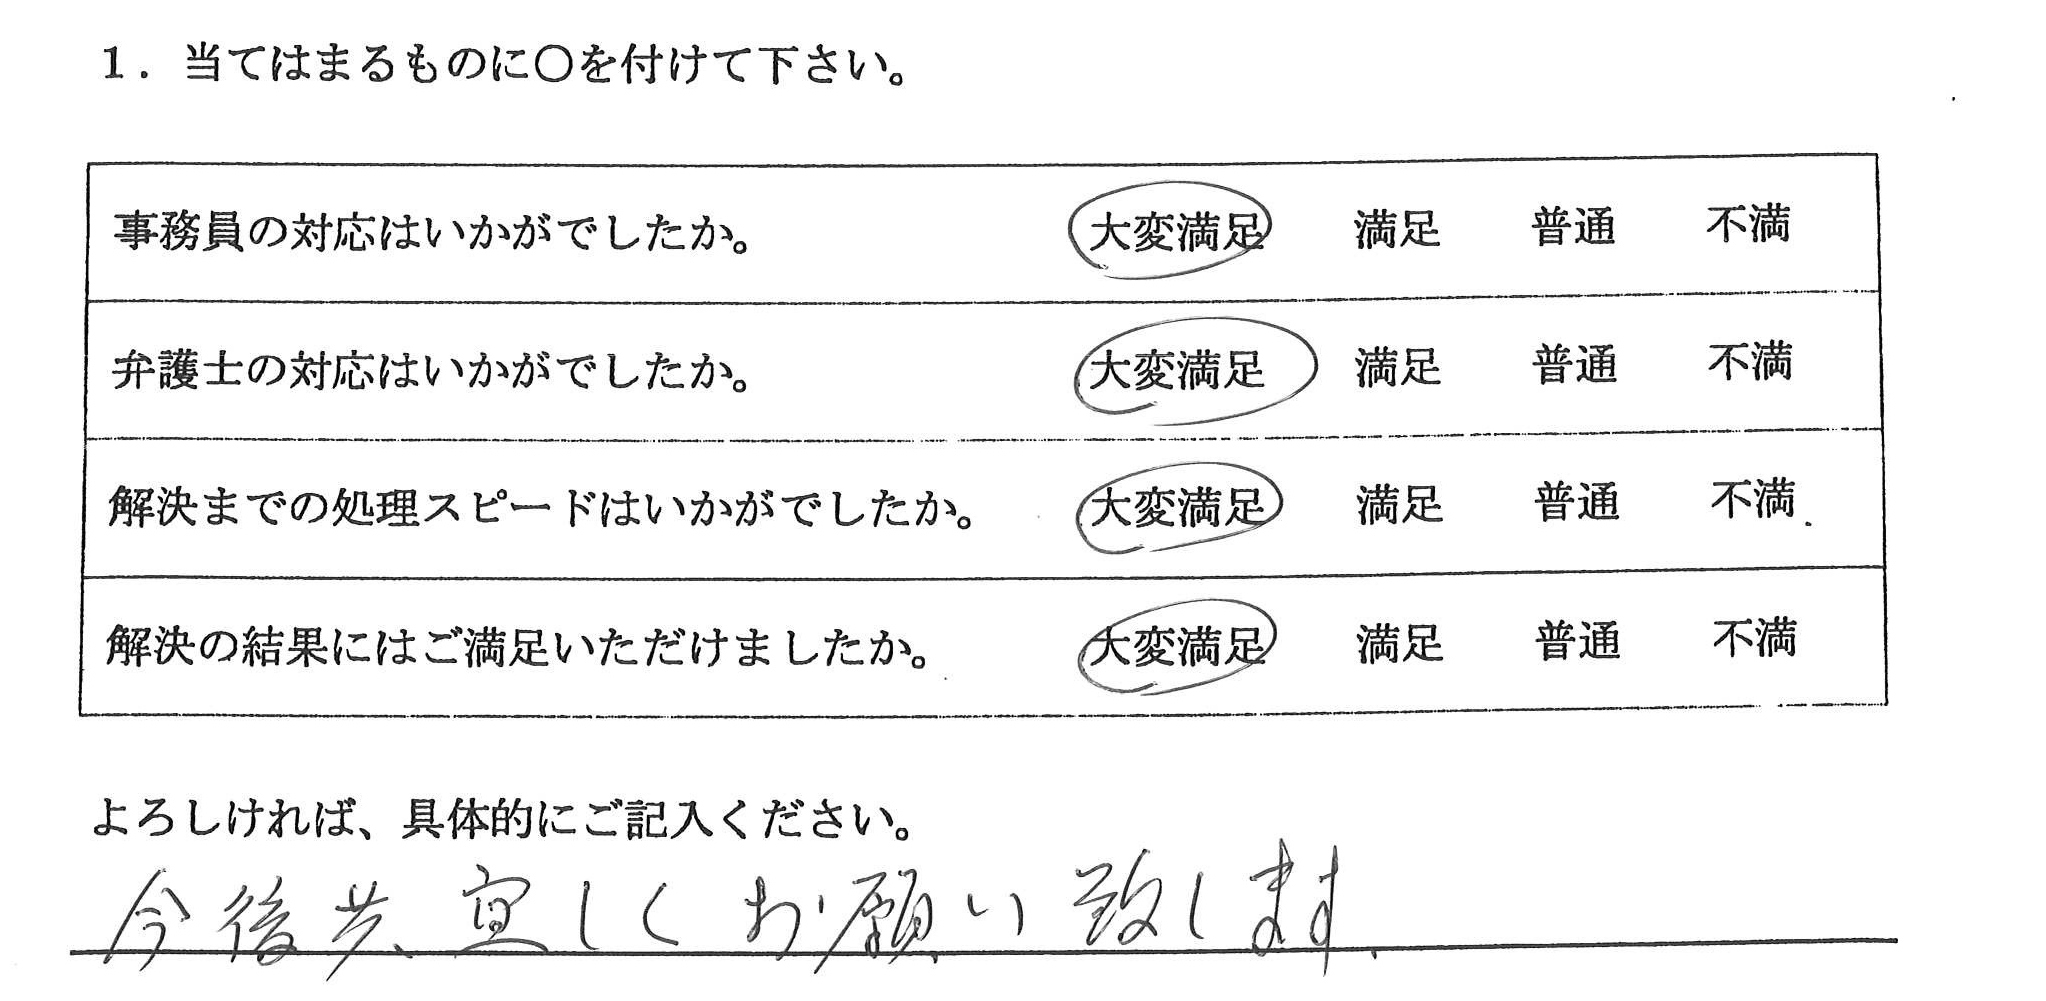 1．当てはまるものに〇を付けて下さい。
事務員の対応はいかがでしたか。 大変満足 満足 普通 不満
弁護士の対応はいかがでしたか。 大変満足 満足 普通 不満
解決までの処理スピードはいかがでしたか。 大変満足 満足 普通 不満
解決の結果にはご満足いただけましたか。 大変満足 満足 普通 不満
よろしければ、具体的にご記入ください。
今後共宜しくお願い致します.